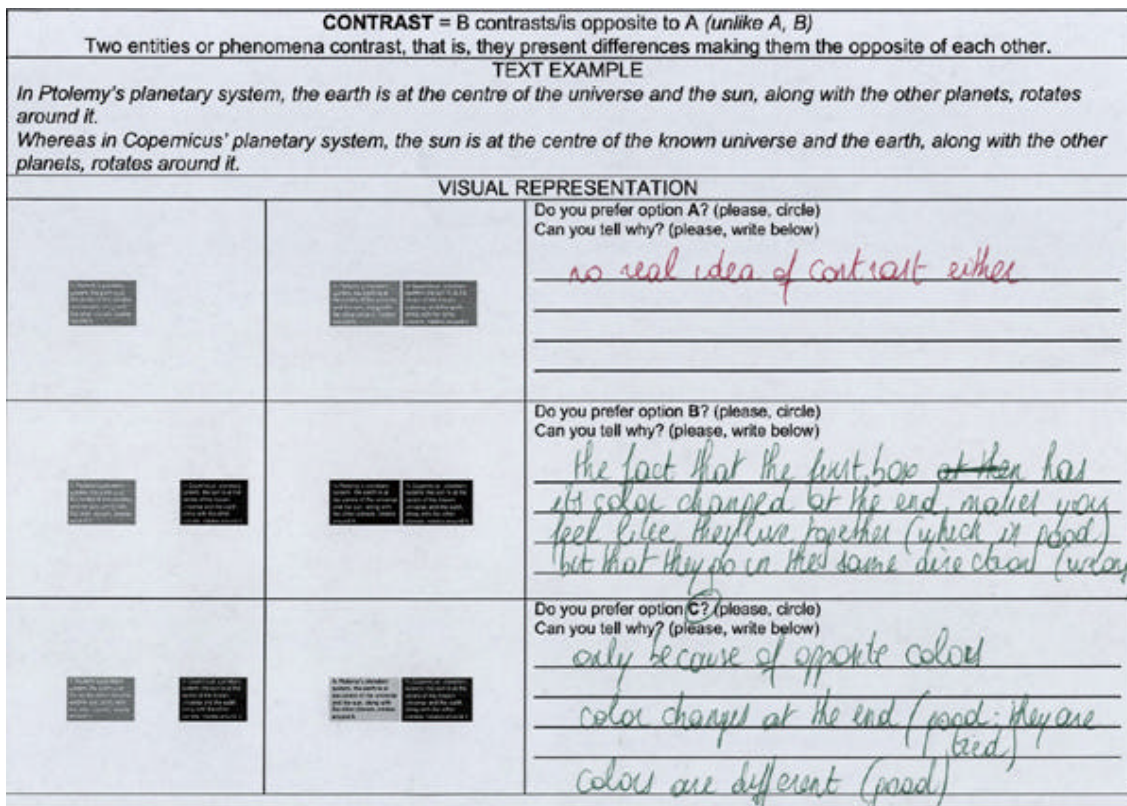 CONTRAST = B contrasts/is opposite to A (unlike A, B)
Two entities or phenomena contrast, that is, they present differences making them the opposite of each other.
TEXT EXAMPLE
In Ptolemy's planetary system, the earth is at the centre of the universe and the sun, along with the other planets, rotates
around it.
Whereas in Copernicus' planetary system, the sun is at the centre of the known universe and the earth, along with the other
planets, rotates around it.
VISUAL REPRESENTATION
Do you prefer option A? (please, circle)
Can you tell why? (please, write below)
no real idea of contrast either
Do you prefer option B? (please, circle)
Can you tell why? (please, write below)
the fact that the first box has
its color changed at the end, makes you
feel like they live together (which is good)
but that they go in the same direction (wrong
Do you prefer option C? (please, circle)
Can you tell why? (please, write below)
only because of opposite colors
color changes at the end (good: they are
tied)
colors are different (good)